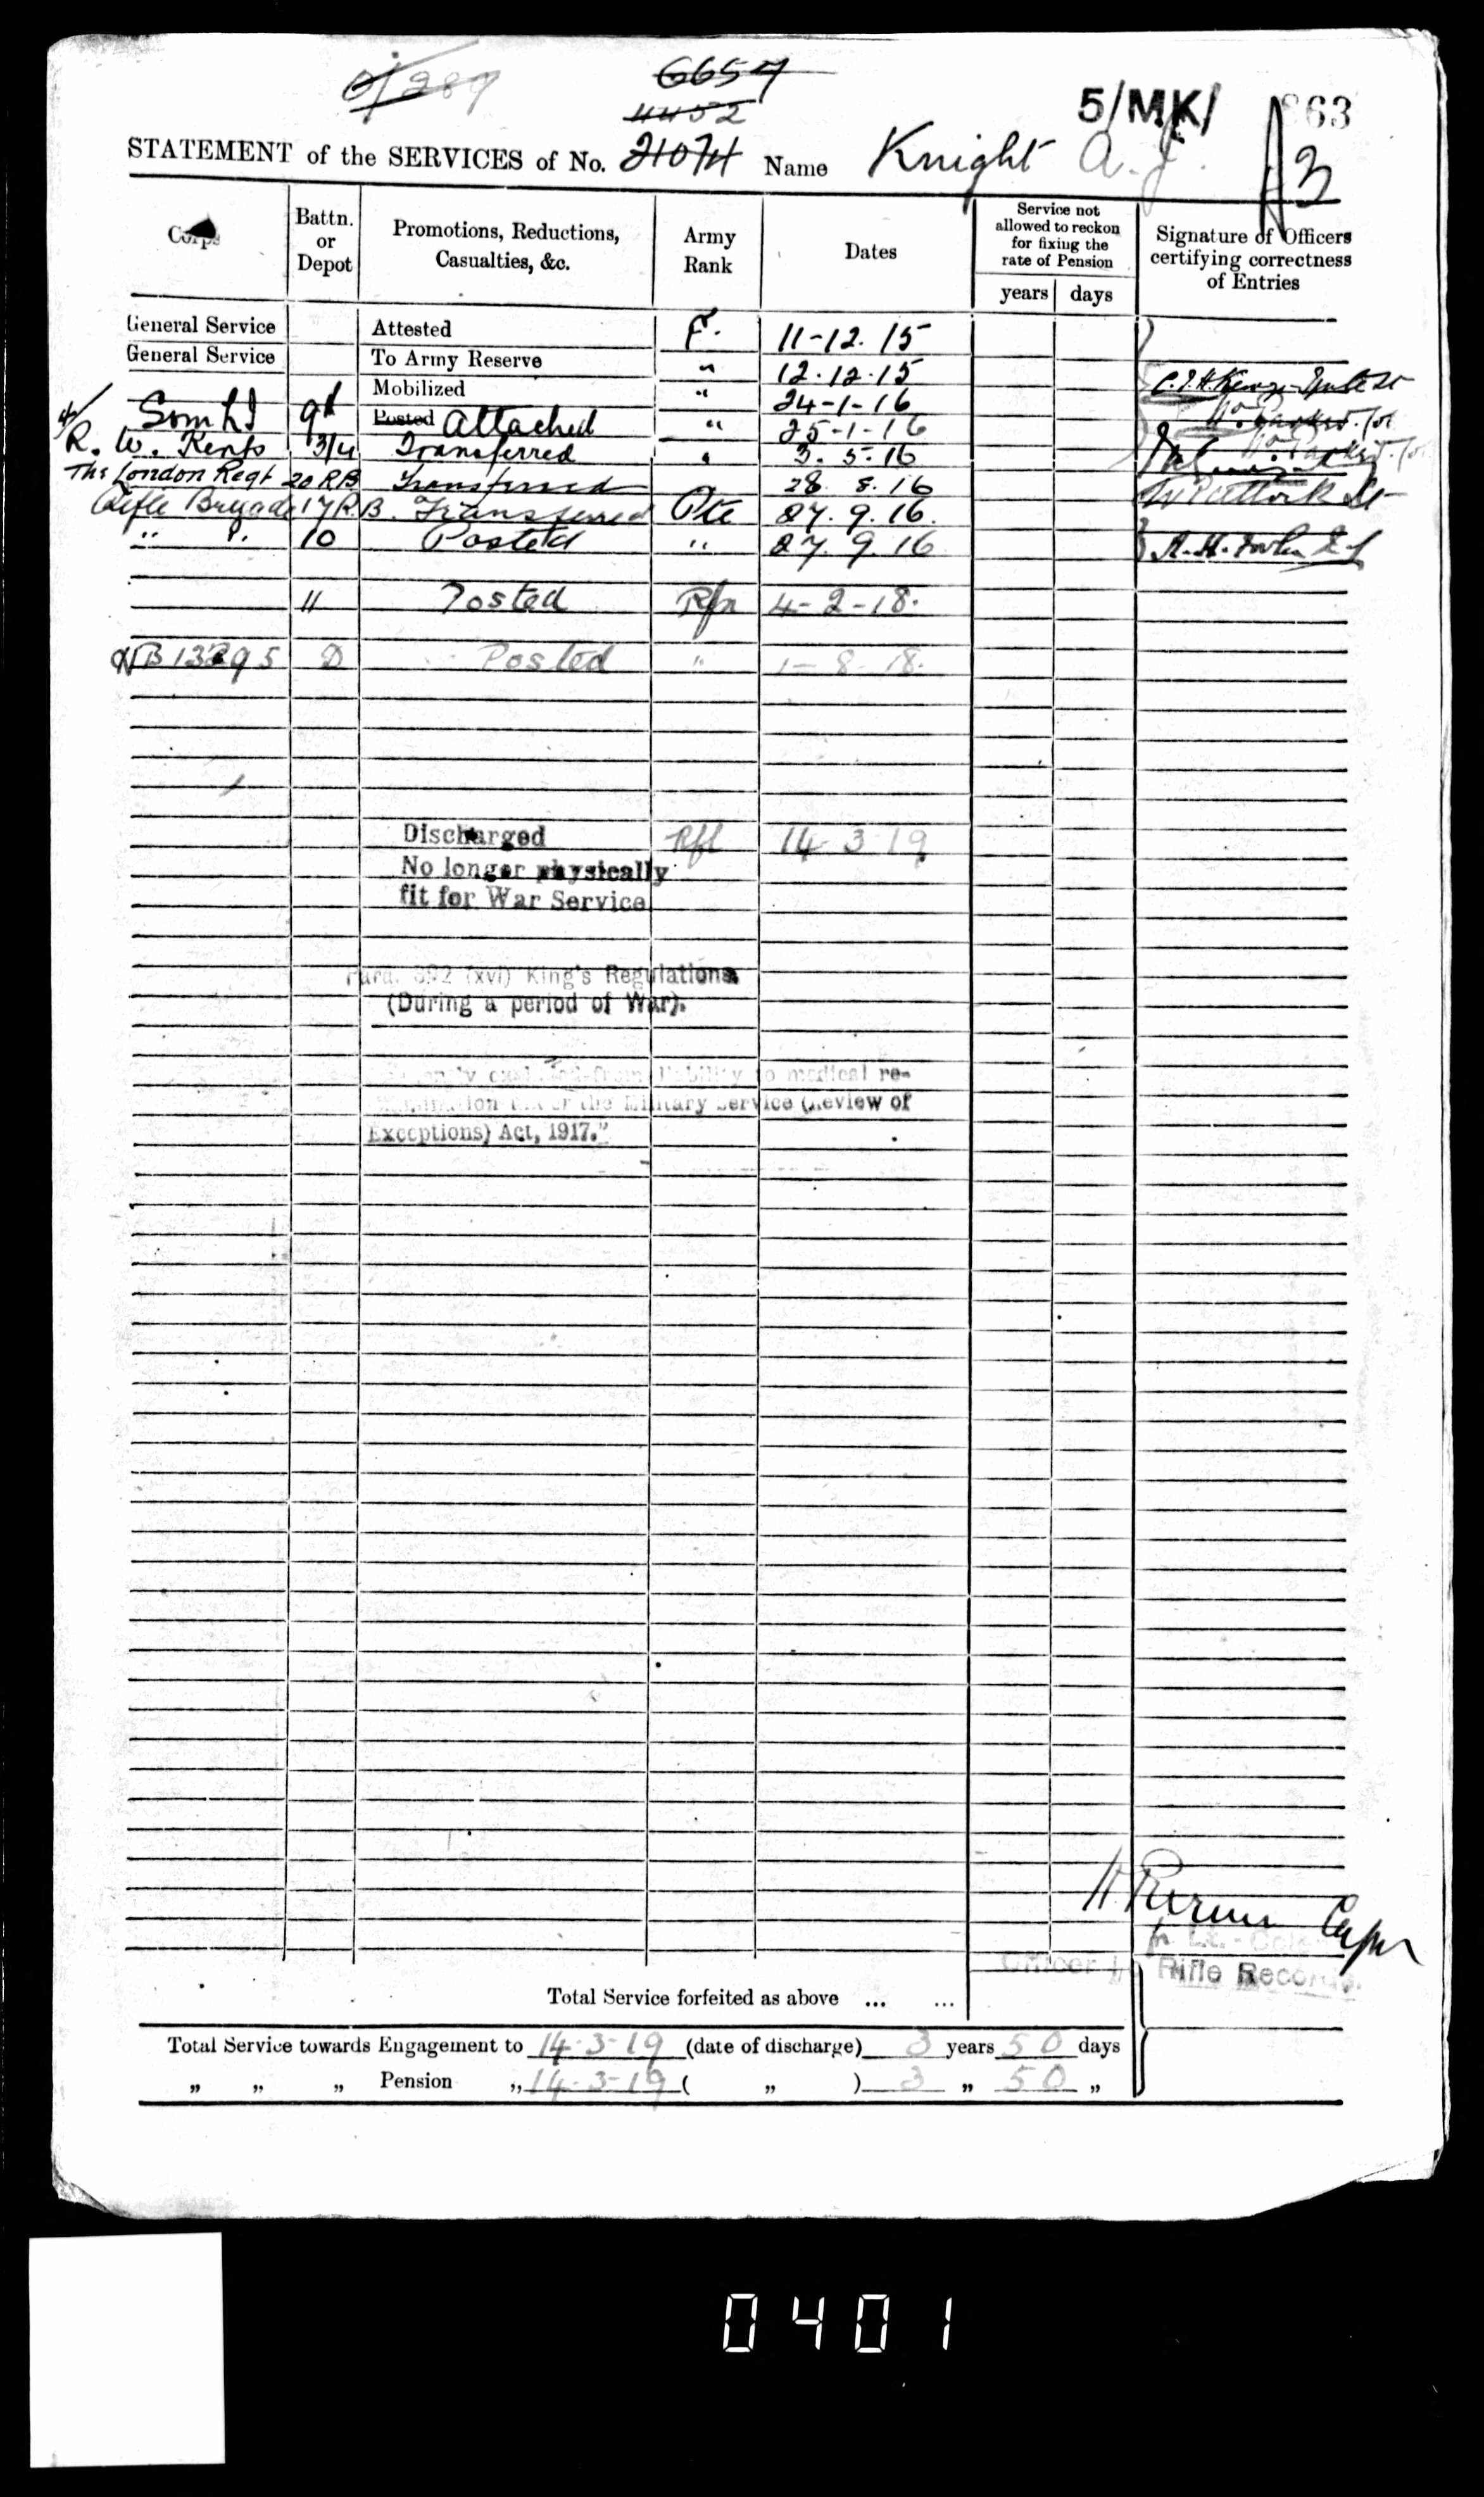 6657
4452
5/MK/ 63
STATEMENT of the SERVICES of No. 21074 Name Knight A.J. 3
Corps
Battn. or Depot
Promotions, Reductions, Casualties, &c.
Army Rank
Dates
Service not allowed to reckon for fixing the rate of Pension
years days
Signature of Officers certifying correctness of Entries
General Service Attested P. 11-12.15
General Service To Army Reserve " 12.12.15
Mobilized " 24-1-16
Som LI 9th Posted Attached " 25-1-16
R. W. Kents 3/4 Transferred " 3.5.16
The London Regt 20 RB Transferred " 28.8.16
Rifle Brigade 17 R.B. Transferred Pte 27.9.16.
" " 10 Posted " 27.9.16
11 Posted Rfn 4-2-18.
D Posted " 1-8-18.
Discharged Rfl 14 3 19
No longer physically
fit for War Service
Para. 392 (xvi) King's Regulations
(During a period of War).
from liability to medical re-
the Military Service (Review of
Exceptions) Act, 1917."
Capt
Lt.-Col
Officer i/c Rifle Records.
Total Service forfeited as above ... ...
Total Service towards Engagement to 14-3-19 (date of discharge) 3 years 50 days
" " " Pension " 14-3-19 ( " ) 3 " 50 "
0401